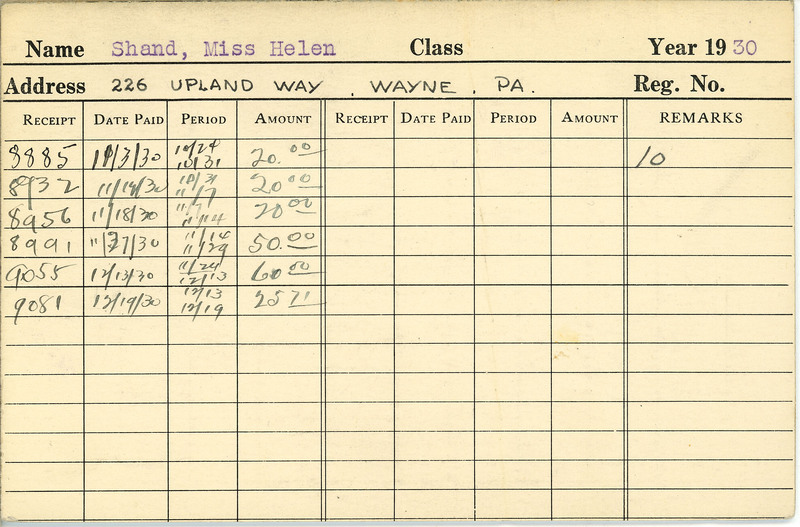 Name Shand, Miss Helen Class Year 1930
Address 226 UPLAND WAY, WAYNE, PA. Reg. No.
RECEIPT DATE PAID PERIOD AMOUNT RECEIPT DATE PAID PERIOD AMOUNT REMARKS
8885 11/3/30 10/24 10/31 20.00 10
8932 11/14/30 10/31 11/7 20.00
8956 11/18/30 11/7 11/14 20.00
8991 11/27/30 11/14 11/29 50.00
9055 12/13/30 12/13 60.00
9081 12/19/30 12/13 12/19 25 71